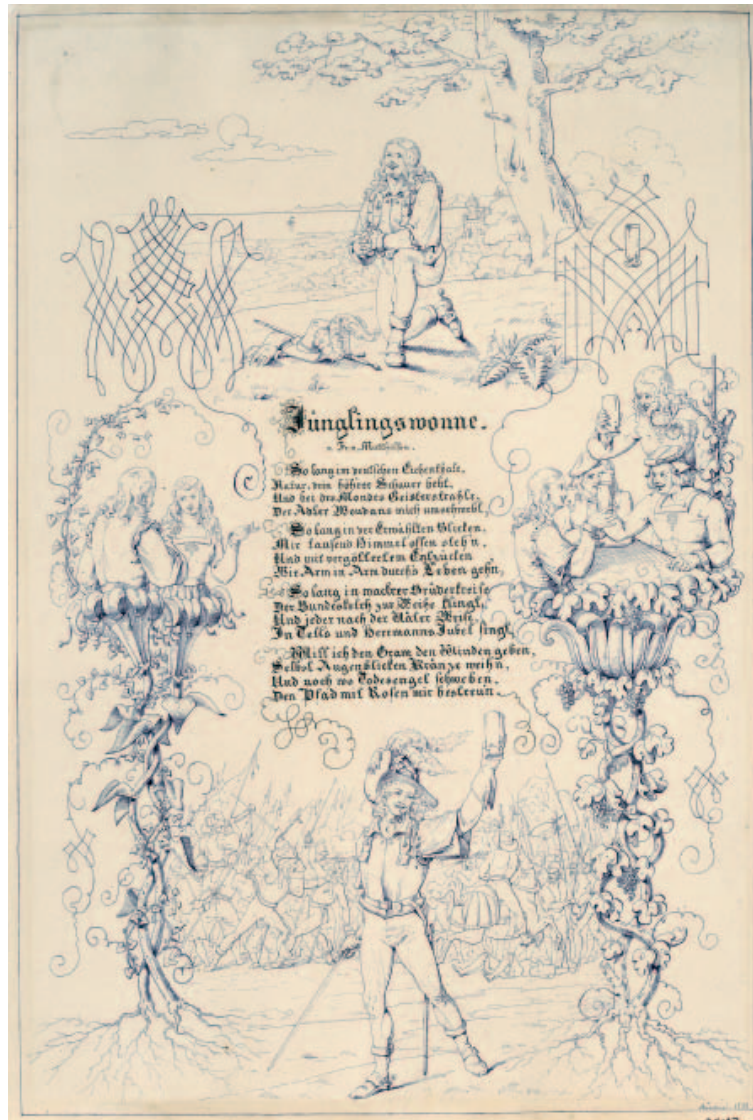 Jünglingswonne.
v. Fr. v. Matthisson.
So lang im deutschen Eichenthale,
Natur, dein höhrer Schauer bebt,
Und bei des Mondes Geisterstrahle,
Der Adler Wodans mich umschwebt,
So lang in der Erwählten Blicken,
Mir tausend Himmel offen stehn,
Und mit vergöttertem Entzücken
Wir Arm in Arm durch's Leben gehn,
So lang in wackrer Brüder Kreise
Der Bundeskelch zur Weihe klingt,
Und jeder nach der Väter Weise
In Tells und Herrmanns Jubel singt,
Will ich den Gram den Winden geben,
Selbst Augenblicken Kränze weihn,
Und noch wo Todesengel schweben,
Den Pfad mit Rosen mir bestreun.